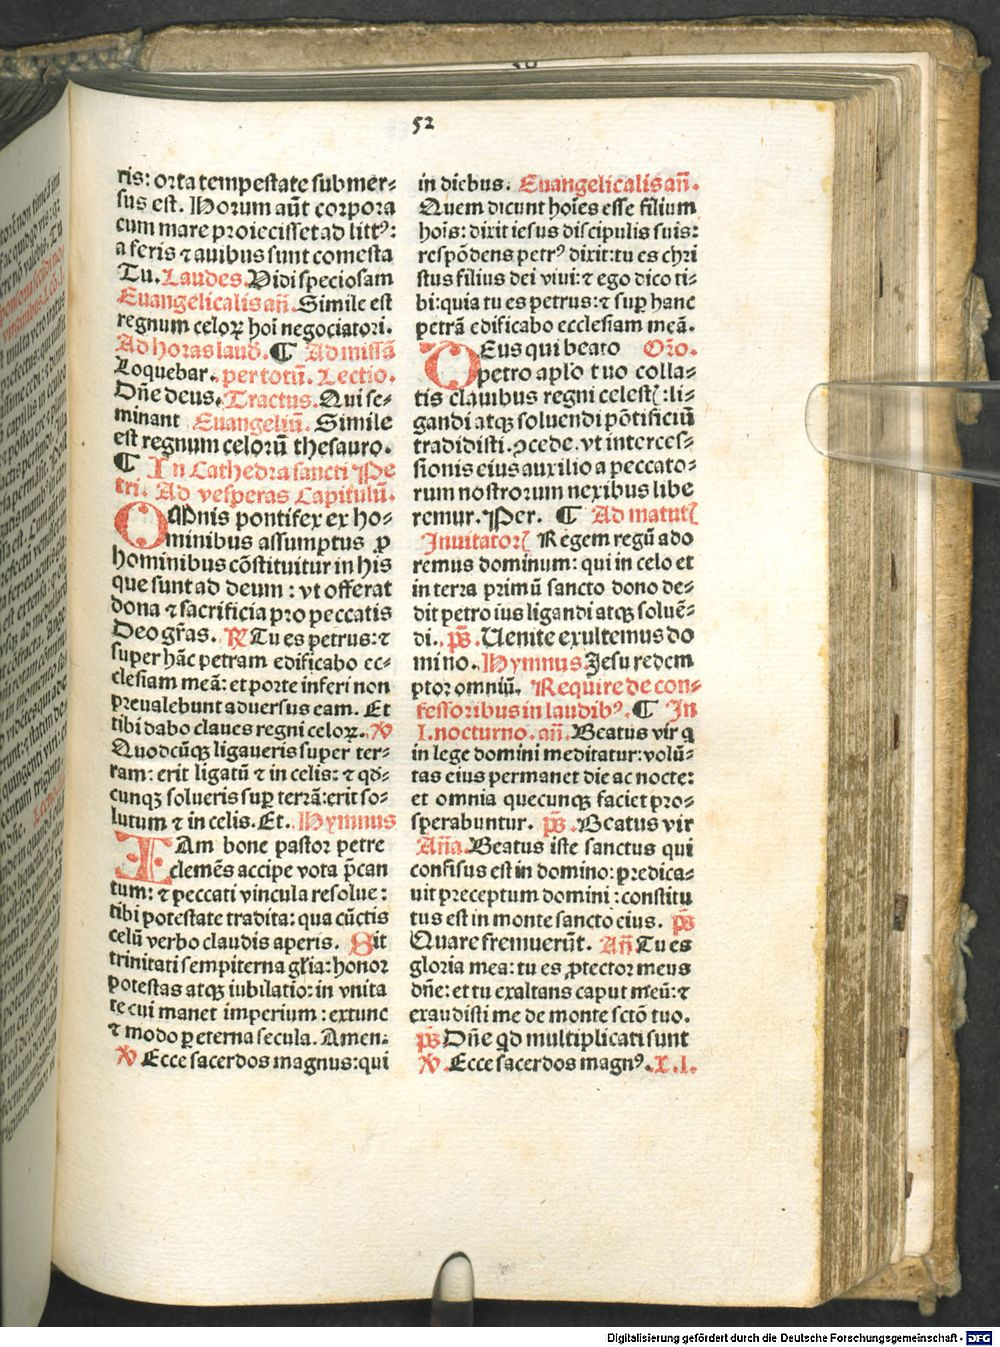 52
ris: orta tempestate submer⸗
sus est. Horum aūt corpora
cum mare proiecisset ad littꝰ:
a feris ⁊ auibus sunt comesta
Tu. Laudes. Vidi speciosam
Euangelicalis añ. Simile est
regnum celoꝝ hoi negociatori.
Ad horas laud̄. ¶ Ad missā
Loquebar. per totū. Lectio.
Dn̄e deus. Tractus. Qui se⸗
minant Euangeliū. Simile
est regnum celorū thesauro.
¶ In Cathedra sancti Pe
tri. Ad vesperas Capitulū.
OMnis pontifex ex ho⸗
minibus assumptus ꝓ
hominibus cōstituitur in his
que sunt ad deum: vt offerat
dona ⁊ sacrificia pro peccatis
Deo grās. ℟ Tu es petrus: ⁊
super hāc petram edificabo ec⸗
clesiam meā: et porte inferi non
preualebunt aduersus eam. Et
tibi dabo claues regni celoꝝ. ℣
Quodcūqꝫ ligaueris super ter⸗
ram: erit ligatū ⁊ in celis: ⁊ qd⸗
cunqꝫ solueris suꝑ terrā: erit so⸗
lutum ⁊ in celis. Et. Hymnus
IAm bone pastor petre
clemēs accipe vota p̄can
tum: ⁊ peccati vincula resolue:
tibi potestate tradita: qua cūctis
celū verbo claudis aperis. Sit
trinitati sempiterna gl̄ia: honor
potestas atqꝫ iubilatio: in vnita
te cui manet imperium: extunc
⁊ modo ꝑ eterna secula. Amen:
℣ Ecce sacerdos magnus: qui
in diebus. Euangelicalis añ.
Quem dicunt hoīes esse filium
hoīs: dixit iesus discipulis suis:
respōdens petrꝰ dixit: tu es chri
stus filius dei viui: ⁊ ego dico ti⸗
bi: quia tu es petrus: ⁊ suꝑ hanc
petrā edificabo ecclesiam meā.
DEus qui beato Oro.
petro apl̄o tuo colla⸗
tis clauibus regni celestꝭ: li⸗
gandi atqꝫ soluendi pōtificiū
tradidisti. ꝯcede. vt interces⸗
sionis eius auxilio a peccato⸗
rum nostrorum nexibus libe
remur. Per. ¶ Ad matutꝭ
Inuitatorꝭ Regem regū ado
remus dominum: qui in celo et
in terra primū sancto dono de⸗
dit petro ius ligandi atqꝫ soluē⸗
di. p̄s. Uenite exultemus do
mino. Hymnus Jesu redem
ptor omniū. Require de con⸗
fessoribus in laudibꝰ. ¶ In
I. nocturno. añ. Beatus vir q
in lege domini meditatur: volū⸗
tas eius permanet die ac nocte:
et omnia quecunqꝫ faciet pro⸗
sperabuntur. p̄s. Beatus vir
Aña. Beatus iste sanctus qui
confisus est in domino: predica⸗
uit preceptum domini: constitu
tus est in monte sancto eius. p̄s
Quare fremuerūt. Añ Tu es
gloria mea: tu es ꝓtector meus
dn̄e: et tu exaltans caput meū: ⁊
exaudisti me de monte sctō tuo.
p̄s Dn̄e qd multiplicati sunt
℣ Ecce sacerdos magnꝰ. L. I.
Digitalisierung gefördert durch die Deutsche Forschungsgemeinschaft - DFG